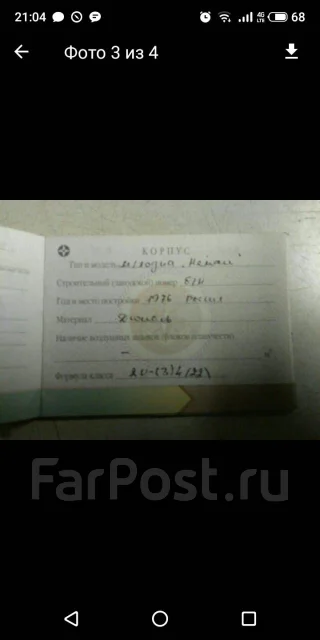 21:04
4G
LTE
68
Фото 3 из 4
КОРПУС
Тип и модель м/лодка "
Строительный (заводской) номер Б/Н
Год и место постройки 1976 Россия
Материал Дюраль
Наличие воздушных ящиков
— м³
Формула класса
FarPost.ru